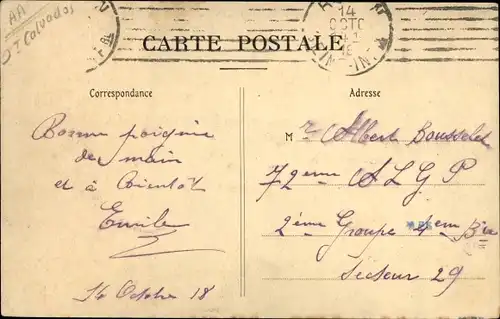 AA
Dt Calvados
14
OCTO
CARTE POSTALE
Correspondance
Adresse
Bonne poignée
de main
et à Bientôt
Emile
14 Octobre 18
Mr Albert Bousselet
72eme ALGP
2ème Groupe 4em Bie
Secteur 29